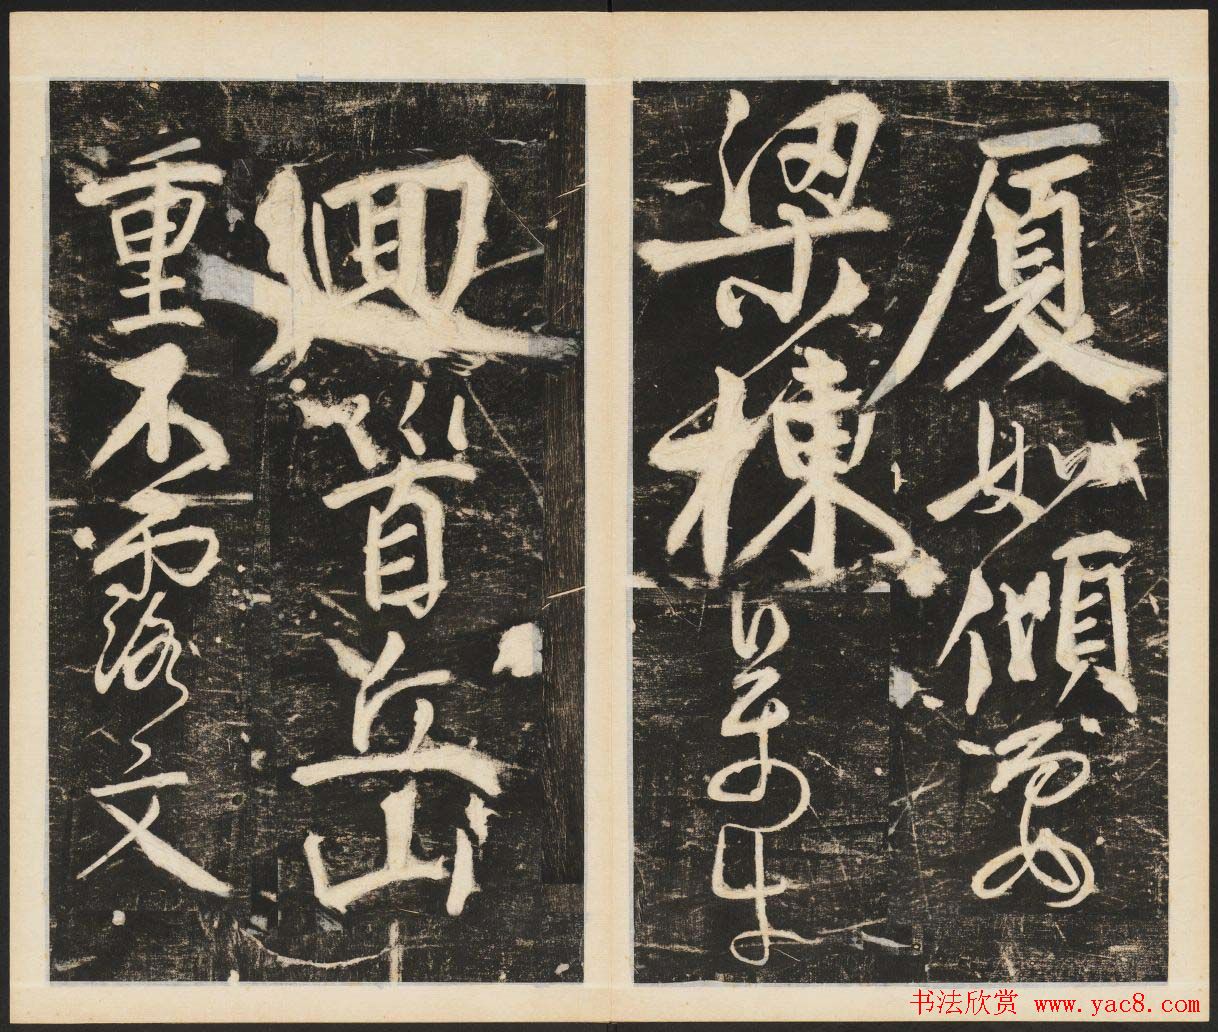 厦如傾要
梁棟萬牛
迴首丘山
重不露文
书法欣赏 www.yac8.com